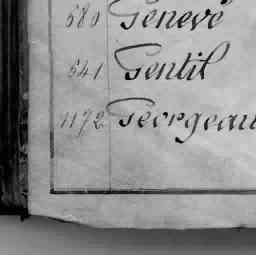 680 Genevé
641 Gentil
1172 Georgeau